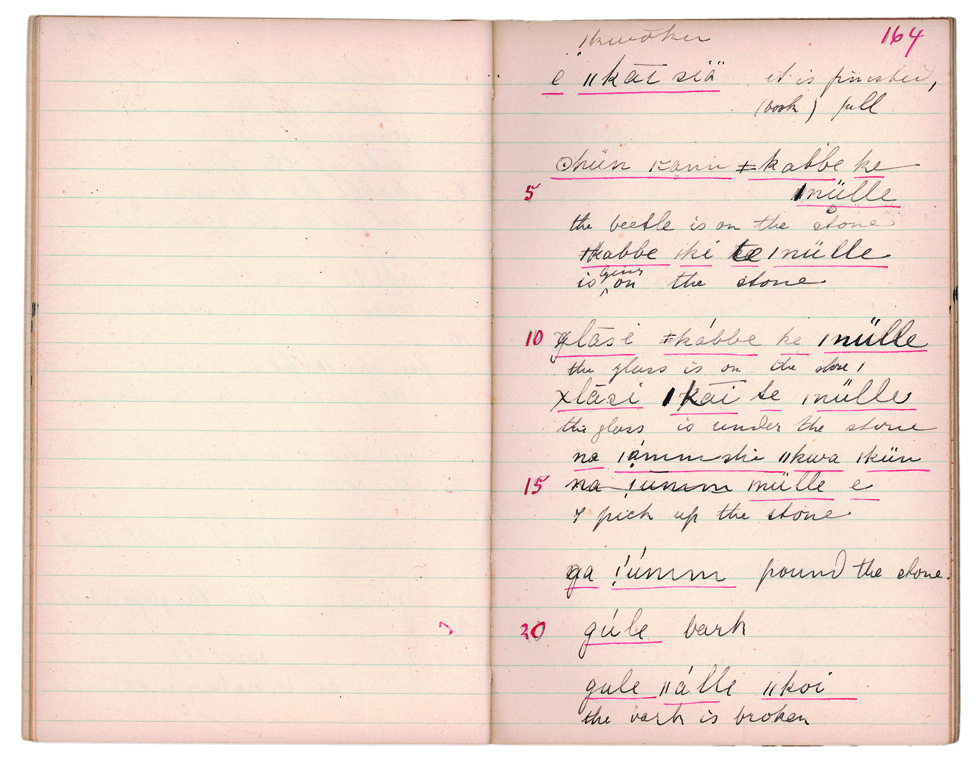 164
ǀkwōken
e ǁkāī siä it is finished,
(book) full
ʘhün ǂkabbe ke
5 ǀnülle
the beetle is on the stone
ǂkabbe ki te ǀnülle
is lying on the stone
10 glāsi ǂkábbe ke ǀnülle
the glass is on the stone
xlāsi ǀkāi te ǀnülle
the glass is under the stone
na ǀámm she ǁkwa ǀkün
15 na ǃümm ǀnülle e
I pick up the stone
ga ǃúmm pound the stone.
20 gúle bark
gule ǁálle ǁkoi
the bark is broken